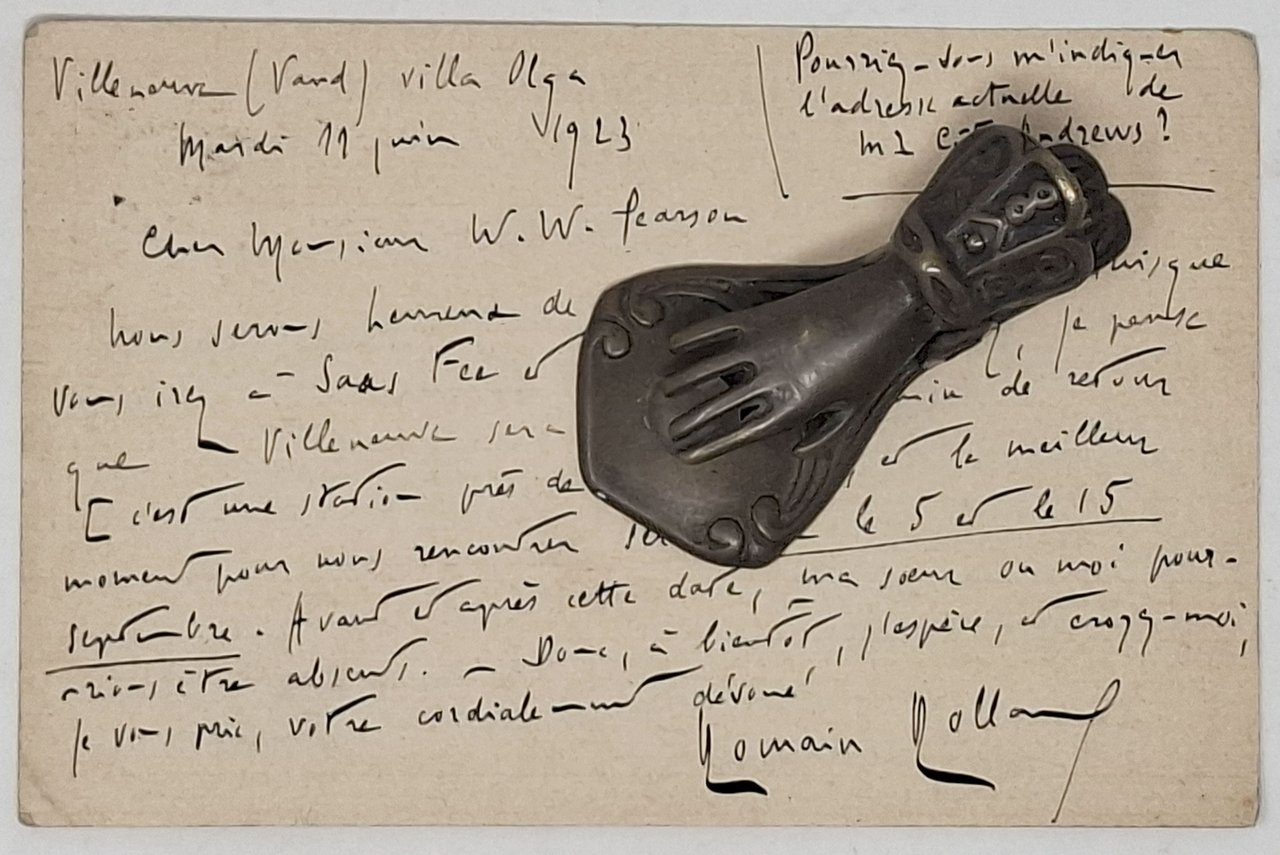 Villeneuve (Vaud) villa Olga
Mardi 11 juin 1923
Pourriez-vous m'indiquer
l'adresse actuelle de
Andrews?
Cher Monsieur W. W. Pearson
puisque
nous serons heureux de
je pense
vous irez à Saas Fee et
de retour
que Villeneuve sera
[c'est une station près de
, et le meilleur
moment pour nous rencontrer
le 5 et le 15
septembre. Avant et après cette date, ma sœur ou moi pour-
rions être absents. — Donc, à bientôt, j'espère, et croyez-moi,
je vous prie, votre cordialement dévoué
Romain Rolland